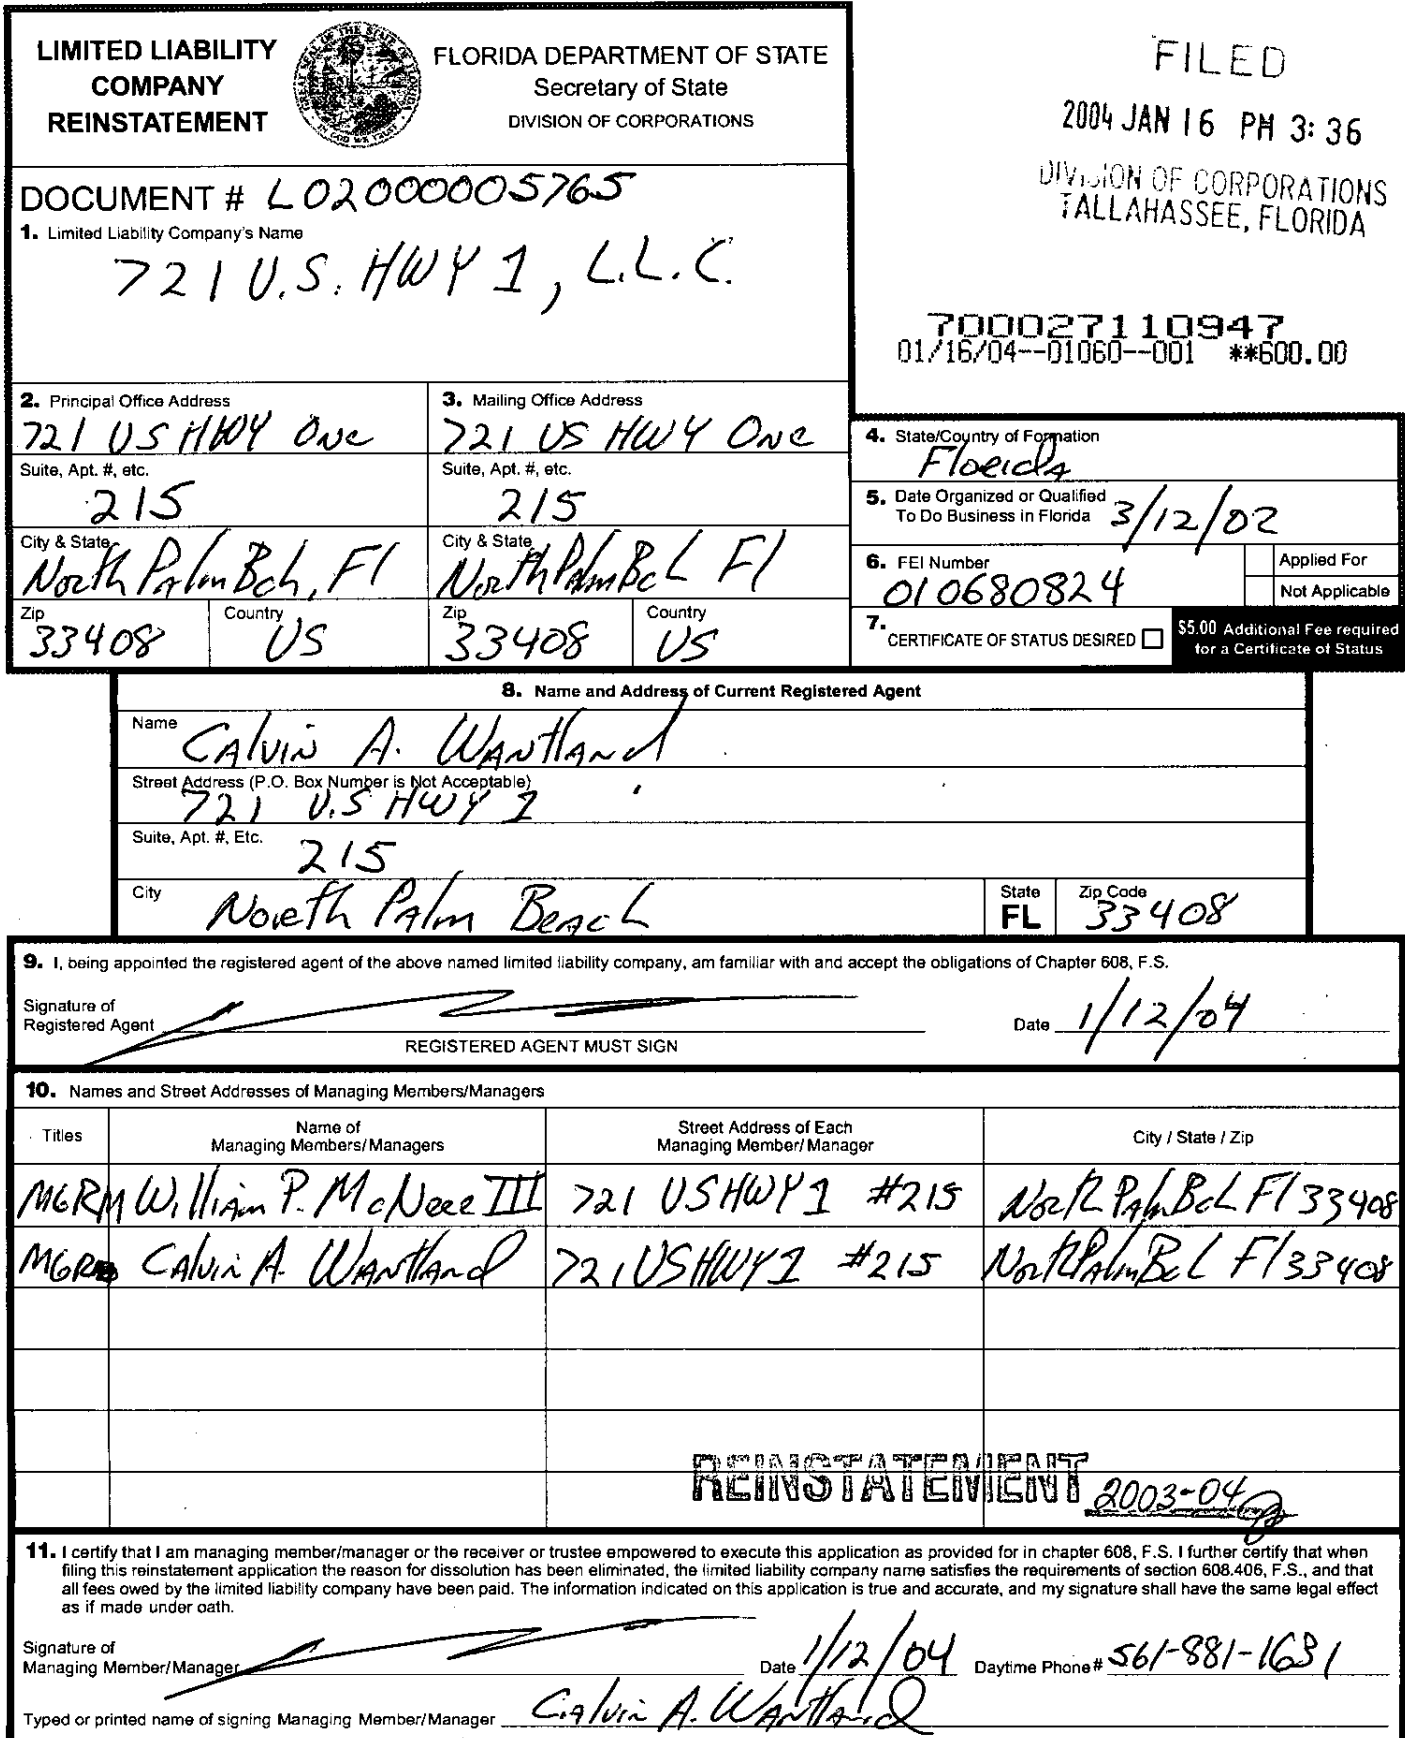 LIMITED LIABILITY
COMPANY
REINSTATEMENT
FLORIDA DEPARTMENT OF STATE
Secretary of State
DIVISION OF CORPORATIONS
FILED
2004 JAN 16 PM 3:36
DIVISION OF CORPORATIONS
TALLAHASSEE, FLORIDA
DOCUMENT # L02000005765
1. Limited Liability Company's Name
721 U.S. HWY 1, L.L.C.
700027110947
01/16/04--01060--001 **600.00
2. Principal Office Address
721 US HWY One
Suite, Apt. #, etc.
215
City & State
North Palm Bch, Fl
Zip
33408
Country
US
3. Mailing Office Address
721 US HWY One
Suite, Apt. #, etc.
215
City & State
North Palm Bch Fl
Zip
33408
Country
US
4. State/Country of Formation
Florida
5. Date Organized or Qualified
To Do Business in Florida 3/12/02
6. FEI Number
010680824
Applied For
Not Applicable
7. CERTIFICATE OF STATUS DESIRED
$5.00 Additional Fee required
for a Certificate of Status
8. Name and Address of Current Registered Agent
Name
Calvin A. Wantland
Street Address (P.O. Box Number is Not Acceptable)
721 U.S HWY 1
Suite, Apt. #, Etc.
215
City
North Palm Beach
State
FL
Zip Code
33408
9. I, being appointed the registered agent of the above named limited liability company, am familiar with and accept the obligations of Chapter 608, F.S.
Signature of
Registered Agent
REGISTERED AGENT MUST SIGN
Date 1/12/04
10. Names and Street Addresses of Managing Members/Managers
Titles
Name of
Managing Members/Managers
Street Address of Each
Managing Member/Manager
City / State / Zip
MGRM William P. McNeee III 721 US HWY 1 #215 North Palm Bch Fl 33408
MGR Calvin A. Wantland 721 US HWY 1 #215 North Palm Bch Fl 33408
REINSTATEMENT 2003-04
11. I certify that I am managing member/manager or the receiver or trustee empowered to execute this application as provided for in chapter 608, F.S. I further certify that when
filing this reinstatement application the reason for dissolution has been eliminated, the limited liability company name satisfies the requirements of section 608.406, F.S., and that
all fees owed by the limited liability company have been paid. The information indicated on this application is true and accurate, and my signature shall have the same legal effect
as if made under oath.
Signature of
Managing Member/Manager
Date 1/12/04 Daytime Phone # 561-881-1631
Typed or printed name of signing Managing Member/Manager Calvin A. Wantland